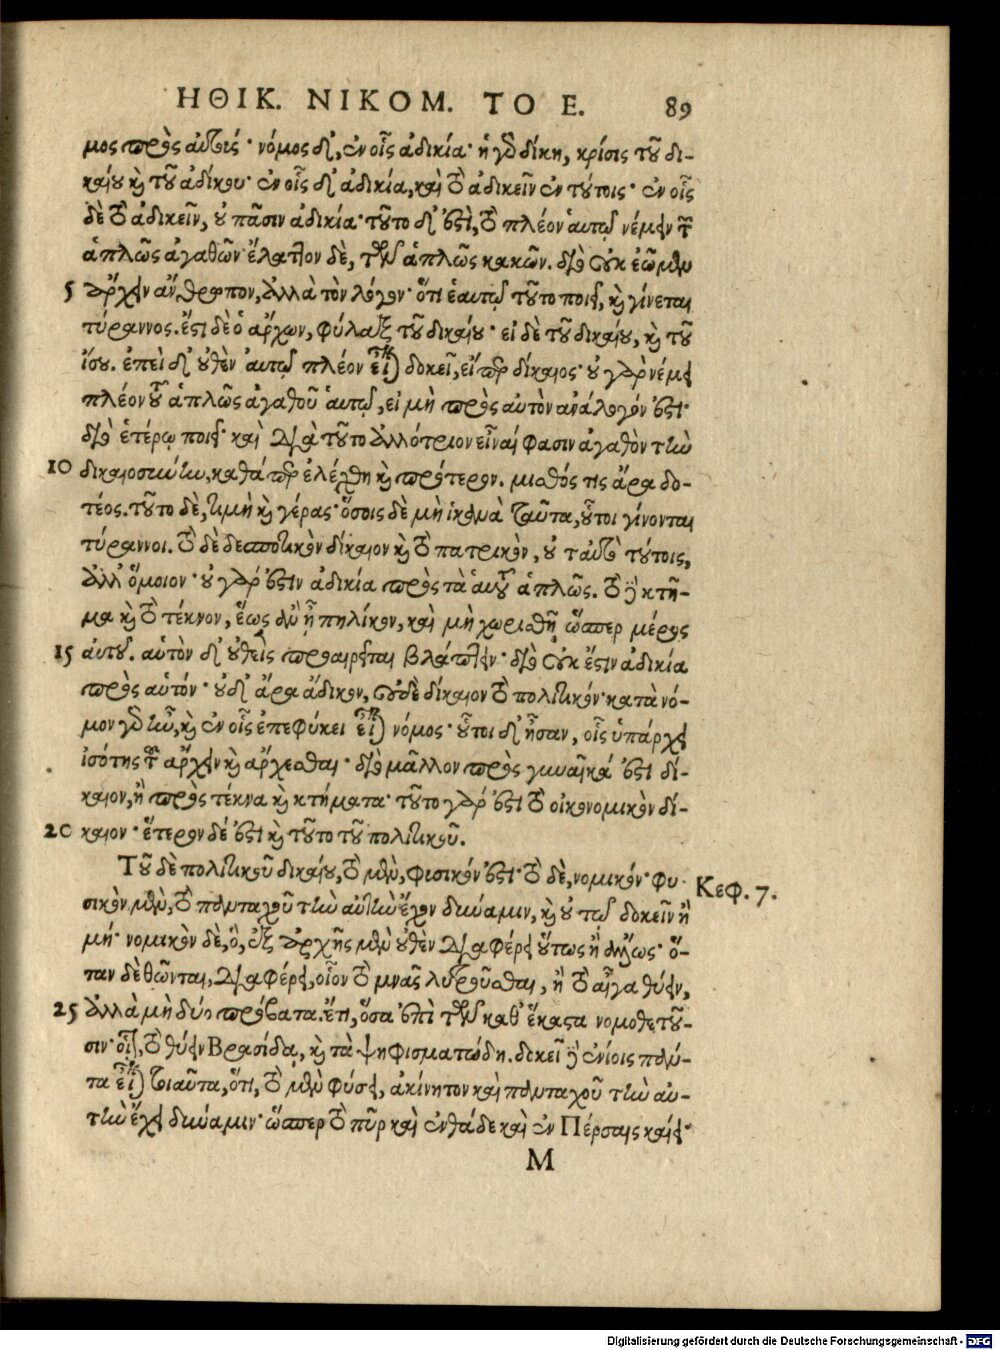 ΗΘΙΚ. ΝΙΚΟΜ. ΤΟ Ε. 89
μος πρὸς αὐτούς· νόμος δ', ἐν οἷς ἀδικία· ἡ γὰρ δίκη, κρίσις τοῦ δι-
καίου καὶ τοῦ ἀδίκου· ἐν οἷς δ' ἀδικία, καὶ τὸ ἀδικεῖν ἐν τούτοις· ἐν οἷς
δὲ τὸ ἀδικεῖν, οὐ πᾶσιν ἀδικία· τοῦτο δ' ἐστὶ, τὸ πλέον αὑτῷ νέμειν τῶν
ἁπλῶς ἀγαθῶν· ἔλαττον δὲ, τῶν ἁπλῶς κακῶν. διὸ οὐκ ἐῶμεν
5 ἄρχειν ἄνθρωπον, ἀλλὰ τὸν λόγον· ὅτι ἑαυτῷ τοῦτο ποιεῖ, καὶ γίνεται
τύραννος. ἔστι δὲ ὁ ἄρχων, φύλαξ τοῦ δικαίου· εἰ δὲ τοῦ δικαίου, καὶ τοῦ
ἴσου. ἐπεὶ δ' οὐθὲν αὑτῷ πλέον εἶναι δοκεῖ, εἴπερ δίκαιος· οὐ γὰρ νέμει
πλέον τοῦ ἁπλῶς ἀγαθοῦ αὑτῷ, εἰ μὴ πρὸς αὐτὸν ἀνάλογόν ἐστι·
διὸ ἑτέρῳ ποιεῖ· καὶ διὰ τοῦτο ἀλλότριον εἶναί φασιν ἀγαθὸν τὴν
10 δικαιοσύνην, καθάπερ ἐλέχθη καὶ πρότερον. μισθός τις ἄρα δο-
τέος. τοῦτο δὲ, τιμὴ καὶ γέρας· ὅσοις δὲ μὴ ἱκανὰ ταῦτα, οὗτοι γίνονται
τύραννοι. τὸ δὲ δεσποτικὸν δίκαιον καὶ τὸ πατρικὸν, οὐ ταὐτὸ τούτοις,
ἀλλ' ὅμοιον· οὐ γάρ ἐστιν ἀδικία πρὸς τὰ αὑτοῦ ἁπλῶς. τὸ δὲ κτῆ-
μα καὶ τὸ τέκνον, ἕως ἂν ᾖ πηλίκον, καὶ μὴ χωρισθῇ ὥσπερ μέρος
15 αὐτοῦ. αὑτὸν δ' οὐθεὶς προαιρεῖται βλάπτειν· διὸ οὐκ ἔστιν ἀδικία
πρὸς αὑτόν· οὐδ' ἄρα ἄδικον, οὐδὲ δίκαιον τὸ πολιτικόν· κατὰ νό-
μον γὰρ ἦν, καὶ ἐν οἷς ἐπεφύκει εἶναι νόμος· οὗτοι δ' ἦσαν, οἷς ὑπάρχει
ἰσότης τοῦ ἄρχειν καὶ ἄρχεσθαι· διὸ μᾶλλον πρὸς γυναῖκά ἐστι δί-
καιον, ἢ πρὸς τέκνα καὶ κτήματα· τοῦτο γάρ ἐστι τὸ οἰκονομικὸν δί-
20 καιον· ἕτερον δέ ἐστι καὶ τοῦτο τοῦ πολιτικοῦ.
Τοῦ δὲ πολιτικοῦ δικαίου, τὸ μὲν, φυσικόν ἐστι· τὸ δὲ, νομικόν· φυ- Κεφ. 7.
σικὸν μὲν, τὸ πανταχοῦ τὴν αὐτὴν ἔχον δύναμιν, καὶ οὐ τῷ δοκεῖν ἢ
μή· νομικὸν δὲ, ὃ, ἐξ ἀρχῆς μὲν οὐθὲν διαφέρει οὕτως ἢ ἄλλως· ὅ-
ταν δὲ θῶνται, διαφέρει, οἷον τὸ μνᾶς λυτροῦσθαι, ἢ τὸ αἶγα θύειν,
25 ἀλλὰ μὴ δύο πρόβατα. ἔτι, ὅσα ἐπὶ τῶν καθ' ἕκαστα νομοθετοῦ-
σιν· οἷον, τὸ θύειν Βρασίδᾳ, καὶ τὰ ψηφισματώδη. δοκεῖ δὲ ἐνίοις πάν-
τα εἶναι τοιαῦτα, ὅτι, τὸ μὲν φύσει, ἀκίνητον καὶ πανταχοῦ τὴν αὐ-
τὴν ἔχει δύναμιν· ὥσπερ τὸ πῦρ καὶ ἐνθάδε καὶ ἐν Πέρσαις καίει·
M
Digitalisierung gefördert durch die Deutsche Forschungsgemeinschaft - DFG